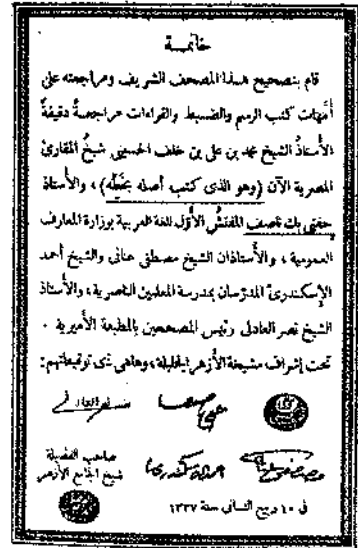 خاتمة
قام بتصحيح هذا المصحف الشريف ومراجعته على
أمهات كتب الرسم والضبط والقراءات مراجعةً دقيقةً
الأستاذ الشيخ محمد بن على بن خلف الحسينى شيخُ المقارئ
المصرية الآن (وهو الذى كتب أصله بخطّه) ، والأستاذ
حفنى بك ناصف المفتشُ الأوّل للغة العربية بوزارة المعارف
العمومية ، والأستاذان الشيخ مصطفى عنانى والشيخ أحمد
الإسكندرىّ المدرّسان بمدرسة المعلمين الناصرية ، والأستاذ
الشيخ نصر العادلى رئيس المصححين بالمطبعة الأميرية .
تحت إشراف مشيخة الأزهر الجليلة ، وهاهى ذى توقيعاتهم :
نصر العادلى
مصطفى عنانى أحمد إسكندرى صاحب الفضيلة
شيخ الجامع الأزهر
فى ١٠ ربيع الثانى سنة ١٣٣٧